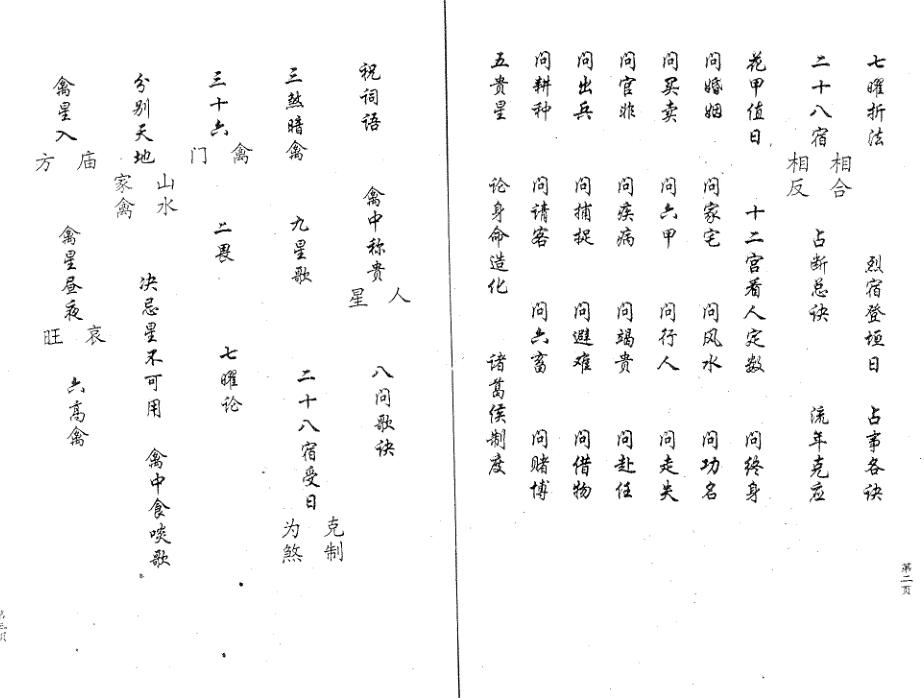 七曜折法 烈宿登垣日 占事各诀
二十八宿 相合 相反 占断总诀 流年克应
花甲值日 十二宫看人定数 问终身
问婚姻 问家宅 问风水 问功名
问买卖 问六甲 问行人 问走失
问官非 问疾病 问谒贵 问赴任
问出兵 问捕捉 问避难 问借物
问耕种 问请客 问六畜 问赌博
五贵星 论身命造化 诸葛侯制度
第二页
祝词语 禽中称贵 人 星 八问歌诀
三煞暗禽 九星歌 二十八宿受日 克制 为煞
三十六 禽 门 二畏 七曜论
分别天地 山水 家禽 决忌星不可用 禽中食啖歌
禽星入 庙 方 禽星昼夜 哀 旺 六高禽
第三页